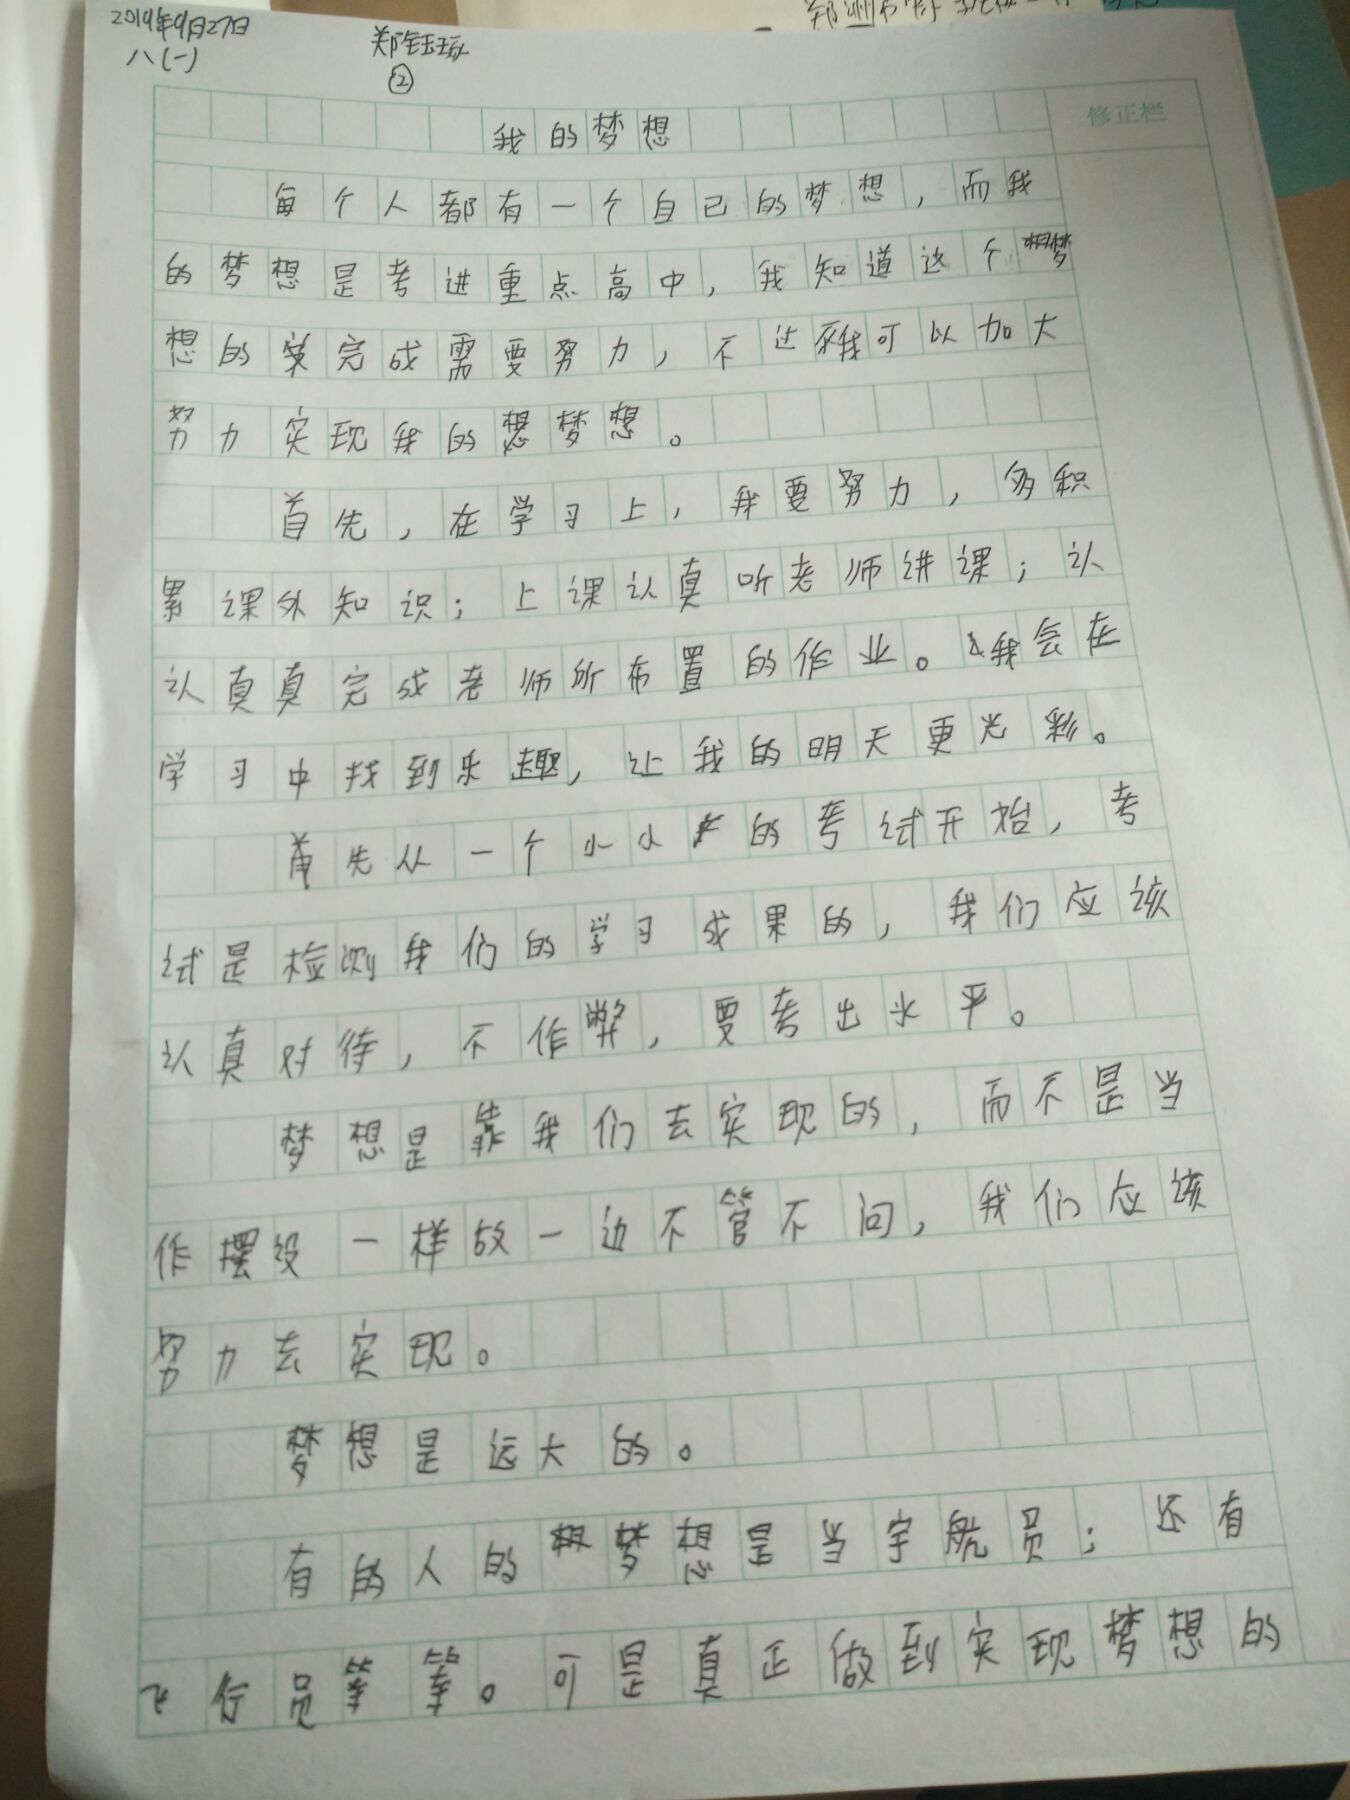 2019年9月27日
八(一)
郑钰
②
修正栏
我的梦想
每个人都有一个自己的梦想，而我
的梦想是考进重点高中，我知道这个梦
想的完成需要努力，不过我可以加大
努力实现我的梦想。
首先，在学习上，我要努力，多积
累课外知识；上课认真听老师讲课；认
认真真完成老师所布置的作业。我会在
学习中找到乐趣，让我的明天更光彩。
首先从一个小小的考试开始，考
试是检测我们的学习成果的，我们应该
认真对待，不作弊，要考出水平。
梦想是靠我们去实现的，而不是当
作摆设一样放一边不管不问，我们应该
努力去实现。
梦想是远大的。
有的人的梦想是当宇航员；还有
飞行员等等。可是真正做到实现梦想的